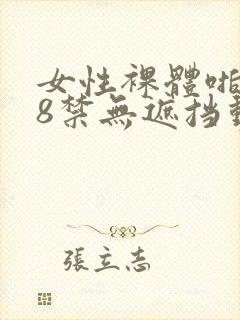 女性裸體啪
8禁無遮挡動
張立志